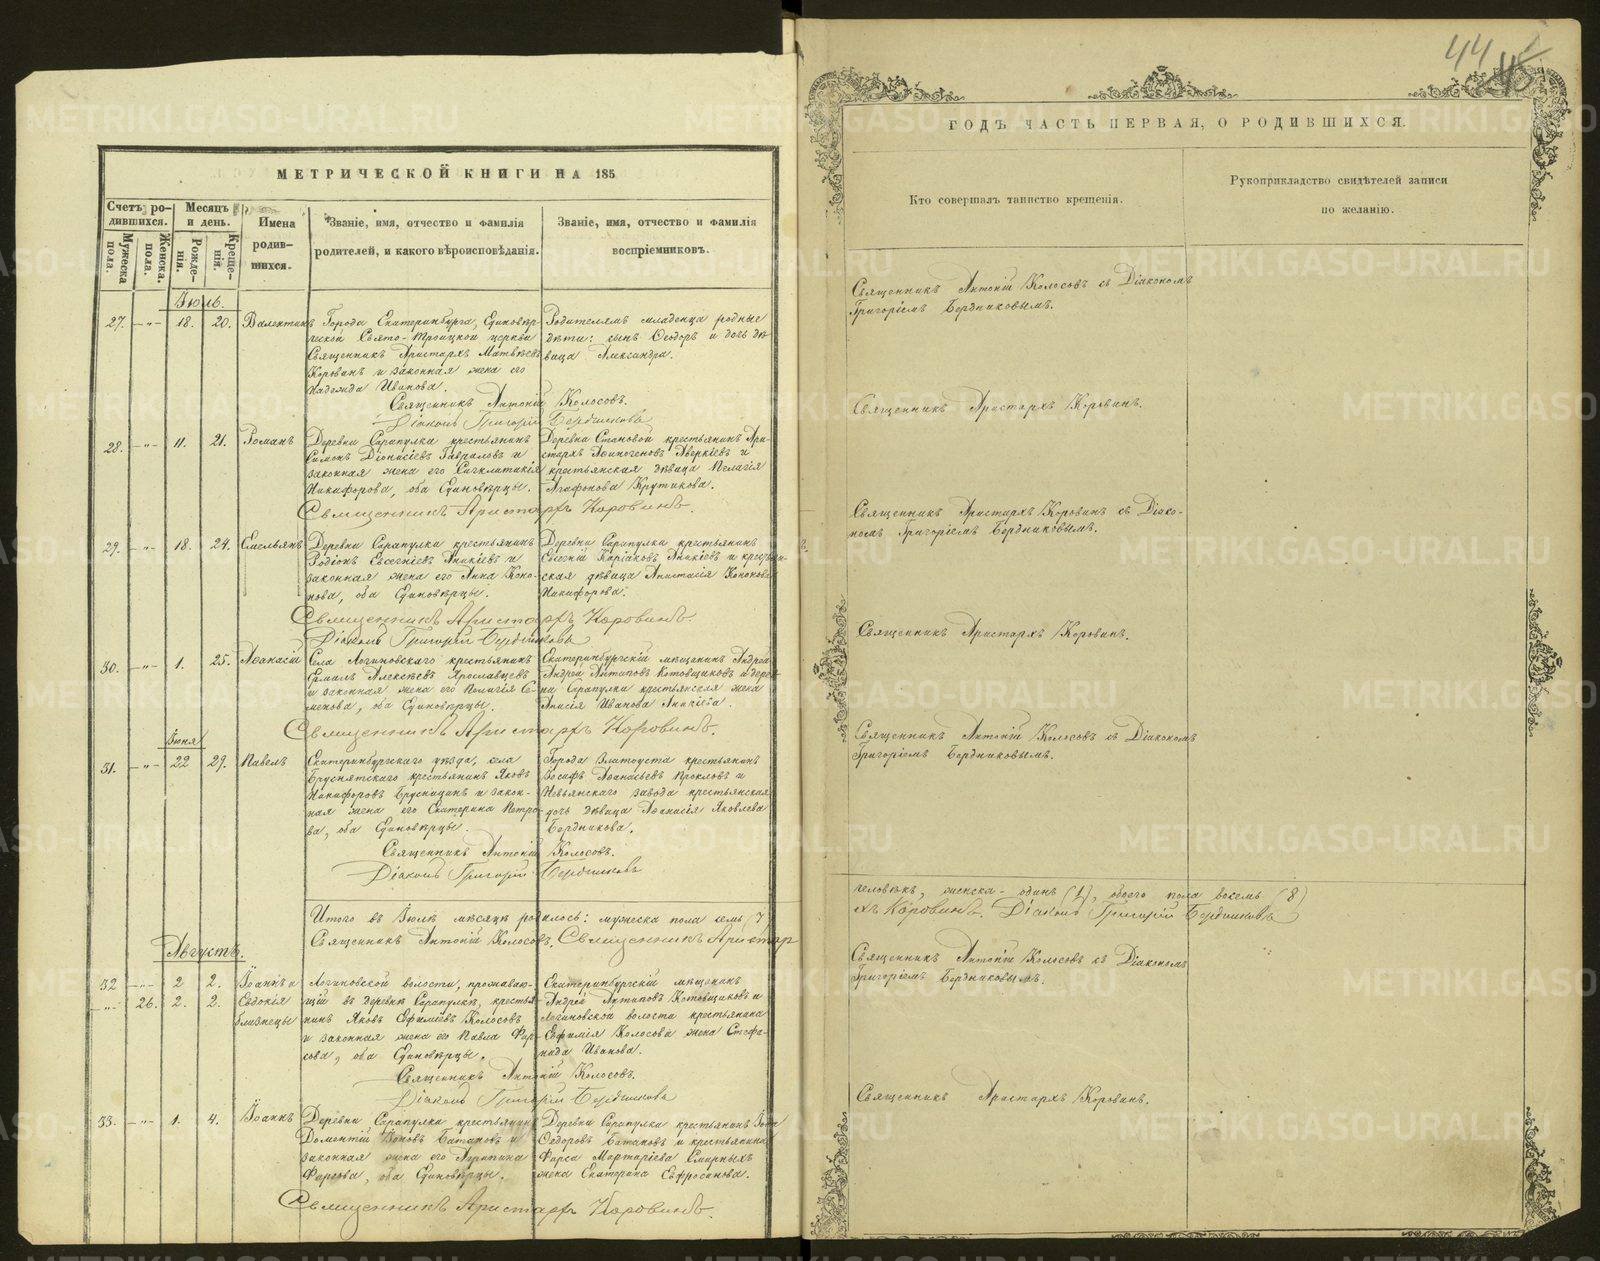 МЕТРИЧЕСКОЙ КНИГИ НА 185
Счетъ ро-
дившихся.
Мужеска пола.
Женска пола.
Месяцъ
и день.
Рожде-
нія.
Креще-
нія.
Имена
родив-
шихся.
Званіе, имя, отчество и фамилія
родителей, и какого вѣроисповѣданія.
Званіе, имя, отчество и фамилія
воспріемниковъ.
Іюль.
27. -"- 18. 20. Валентинъ
Города Екатеринбурга, Единовѣр-
ческой Свято-Троицкой церкви
Священникъ Аристархъ Матвѣевъ
Коровинъ и законная жена его
Надежда Иванова.
Родителямъ младенца родные
дѣти: сынъ Ѳеодоръ и дочь дѣ-
вица Александра.
Священникъ Антоній Колосовъ.
Діаконъ Григорій Бердниковъ
28. -"- 11. 21. Романъ
Деревни Сарапулка крестьянинъ
Симонъ Діонисіевъ Гавриловъ и
законная жена его Сигклитикія
Никифорова, оба Единовѣрцы.
Деревни Становой крестьянинъ Ари-
стархъ Аѳиногеновъ Аверкіевъ и
крестьянская дѣвица Пелагія
Агафонова Крутикова.
Священникъ Аристархъ Коровинъ.
29. -"- 18. 24. Емельянъ
Деревни Сарапулки крестьянинъ
Родіонъ Евсегніевъ Аникіевъ и
законная жена его Анна Коно-
нова, оба Единовѣрцы.
Деревни Сарапулки крестьянинъ
Евгеній Киріаковъ Аникіевъ и крестьян-
ская дѣвица Анастасія Кононова
Никифорова.
Священникъ Аристархъ Коровинъ.
Діаконъ Григорій Бердниковъ
30. -"- 1. 25. Аѳанасій
Села Логиновскаго крестьянинъ
Алексѣевъ Ярославцевъ
и законная жена его Пелагія Се-
менова, оба Единовѣрцы.
Екатеринбургскій мѣщанинъ Андрей
Андрей Антиповъ Котовщиковъ и дерев-
ни Сарапулки крестьянская жена
Анисія Иванова Аникіева.
Священникъ Аристархъ Коровинъ.
Іюня
31. -"- 22 29. Павелъ
Екатеринбургскаго уѣзда, села
Бруснятскаго крестьянинъ Яковъ
Никифоровъ Брусницинъ и закон-
ная жена его Екатерина Петро-
ва, оба Единовѣрцы.
Города Златоуста крестьянинъ
Іосифъ Аѳанасьевъ Прокловъ и
Невьянскаго завода крестьянская
дочь дѣвица Аѳанасія Яковлева
Бердникова.
Священникъ Антоній Колосовъ.
Діаконъ Григорій Бердниковъ
Итого въ Іюлѣ мѣсяцѣ родилось: мужеска пола семь (7
Священникъ Антоній Колосовъ. Священникъ Аристар
Августъ.
32 -"- 2 2. Іоаннъ и
-"- 26. 2. 2. Евдокія
близнецы
Логиновской волости, прожаваю-
щій въ деревнѣ Сарапулкѣ, крестья-
нинъ Яковъ Ефимьевъ Колосовъ
и законная жена его Павла Фир-
сова, оба Единовѣрцы.
Екатеринбургскій мѣщанинъ
Андрей Антиповъ Котовщиковъ и
Логиновской волости крестьянина
Ефимія Колосова жена Стефа-
нида Иванова.
Священникъ Антоній Колосовъ.
Діаконъ Григорій Бердниковъ
33. -"- 1. 4. Іоаннъ
Деревни Сарапулки крестьянинъ
Доментій Іоновъ Батановъ и
законная жена его Агрипина
Фирсова, оба Единовѣрцы.
Деревни Сарапулки крестьянинъ Іона
Ѳедоровъ Батановъ и крестьянина
Фирса Мартиріева Смирныхъ
жена Екатерина Евфросинова.
Священникъ Аристархъ Коровинъ.
44
45
ГОДЪ ЧАСТЬ ПЕРВАЯ, О РОДИВШИХСЯ.
Кто совершалъ таинство крещенія.
Рукоприкладство свидѣтелей записи
по желанію.
Священникъ Антоній Колосовъ съ Діакономъ
Григоріемъ Бердниковымъ.
Священникъ Аристархъ Коровинъ.
Священникъ Аристархъ Коровинъ съ Діако-
номъ Григоріемъ Бердниковымъ.
Священникъ Аристархъ Коровинъ.
Священникъ Антоній Колосовъ съ Діакономъ
Григоріемъ Бердниковымъ.
человѣкъ, женска - одинъ (1), обоего пола восемь (8)
хъ Коровинъ. Діаконъ Григорій Бердниковъ
Священникъ Антоній Колосовъ съ Діакономъ
Григоріемъ Бердниковымъ.
Священникъ Аристархъ Коровинъ.
METRIKI.GASO-URAL.RU